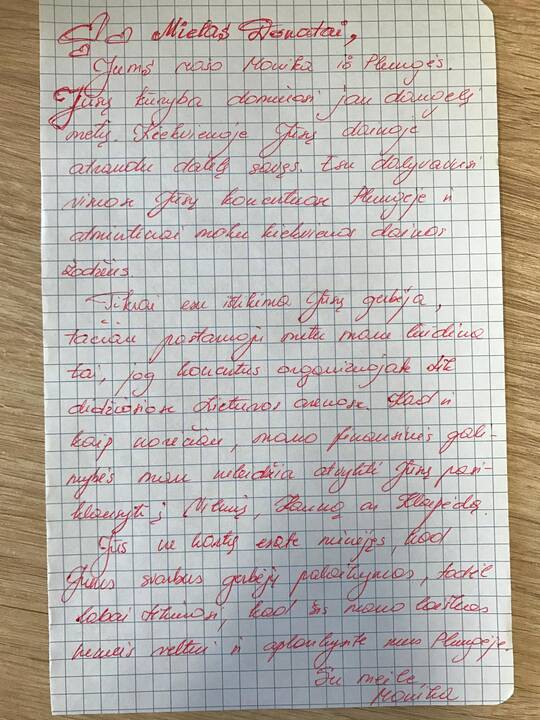 Mielas Donatai,
Jums rašo Monika iš Plungės.
Jūsų kūryba domiuosi jau daugelį
metų. Kiekvienoje Jūsų dainoje
atrandu dalelę savęs. Esu dalyvavusi
visuose Jūsų koncertuose Plungėje ir
atmintinai moku kiekvienos dainos
žodžius.
Tikrai esu ištikima Jūsų gerbėja,
tačiau pastaruoju metu mane liūdina
tai, jog koncertus organizuojate tik
didžiosiose Lietuvos arenose. Kad ir
kaip norėčiau, mano finansinės gali-
mybės man neleidžia atvykti Jūsų pasi-
klausyti į Vilnių, Kauną ar Klaipėdą.
Jūs ne kartą esate minėjęs, kad
Jums svarbus gerbėjų palaikymas, todėl
labai tikiuosi, kad šis mano laiškas
nenueis veltui ir aplankysite mus Plungėje.
Su meile
Monika